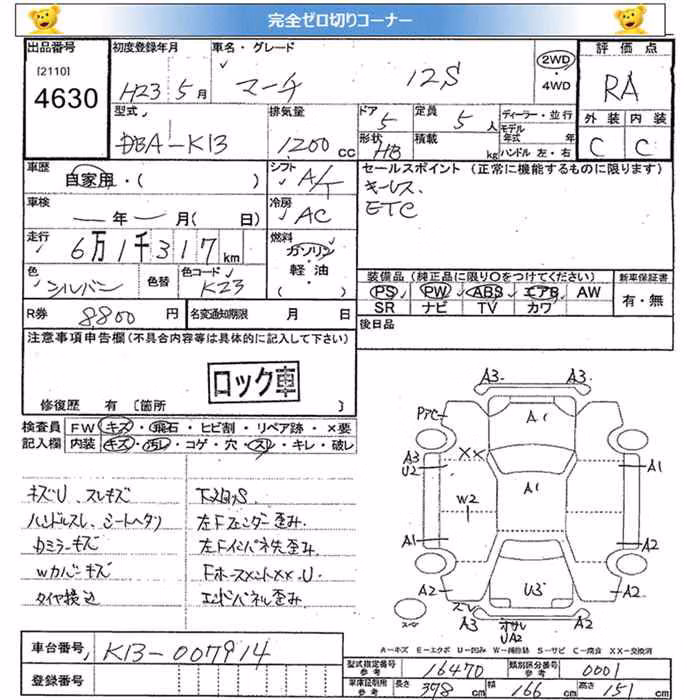 完全ゼロ切りコーナー
出品番号 初度登録年月 車名・グレード 評価点
[2110]
4630
H23 5月 マーチ 12S 2WD・4WD RA
型式 排気量 ドア 定員 ディーラー・並行 外装 内装
DBA-K13 1200cc 5 5人 モデル年式 年 C C
形状 HB 積載 kg ハンドル 左・右
車歴 自家用・( ) シフト A/T セールスポイント (正常に機能するものに限ります)
キーレス、
ETC
車検 ー年ー月(日) 冷房 AC
走行 6万1千317km 燃料 ガソリン・軽油・( )
色 シルバー 色替 色コード K23
装備品 (純正品に限り○をつけてください) 新車保証書
PS PW ABS エアB AW 有・無
SR ナビ TV カワ
R券 8,800円 名変通知期限 月 日 後日品
注意事項申告欄 (不具合内容等は具体的に記入して下さい)
ロック車
修復歴 有 〔箇所 〕
検査員 FW キズ・飛石・ヒビ割・リペア跡・×要
記入欄 内装 キズ・汚レ・コゲ・穴・スレ・キレ・破レ
キズU、スレキズ
ハンドルスレ、シートヘタリ 左Fフェンダー歪み
カミラーキズ 左Fインパネ先歪み
Wカバーキズ
タイヤ積込 エンドパネル歪み
A3 A3
A1
A3
U2
XX
A1
A1
W2
A1 A2
A2 U3 A2
スレ
UA2
スペア
A-キズ E-エクボ U-凹み W-補修跡 S-サビ C-腐食 XX-交換済
車台番号 K13-007914
型式指定番号 参考 16470 類別区分番号 参考 0001
登録番号
車庫証明用 参考 長さ 378cm 幅 166cm 高さ 151cm